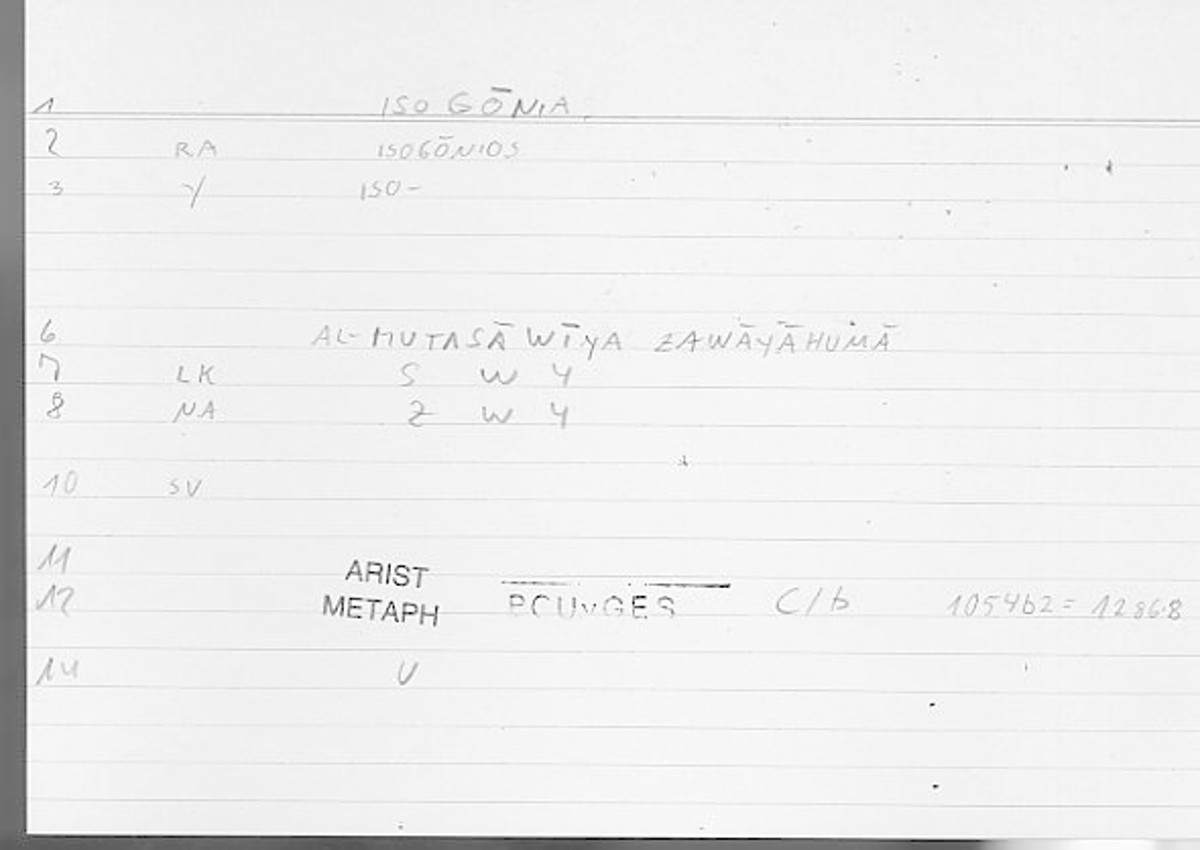 1 ISOGŌNIA
2 RA ISOGŌNIOS
3 γ ISO-
6 AL-MUTASĀWĪYA ZAWĀYĀHUMĀ
7 LK S W Y
8 NA Z W Y
10 SV
11 ARIST
12 METAPH C/b 1054b2 = 1286.8
14 U